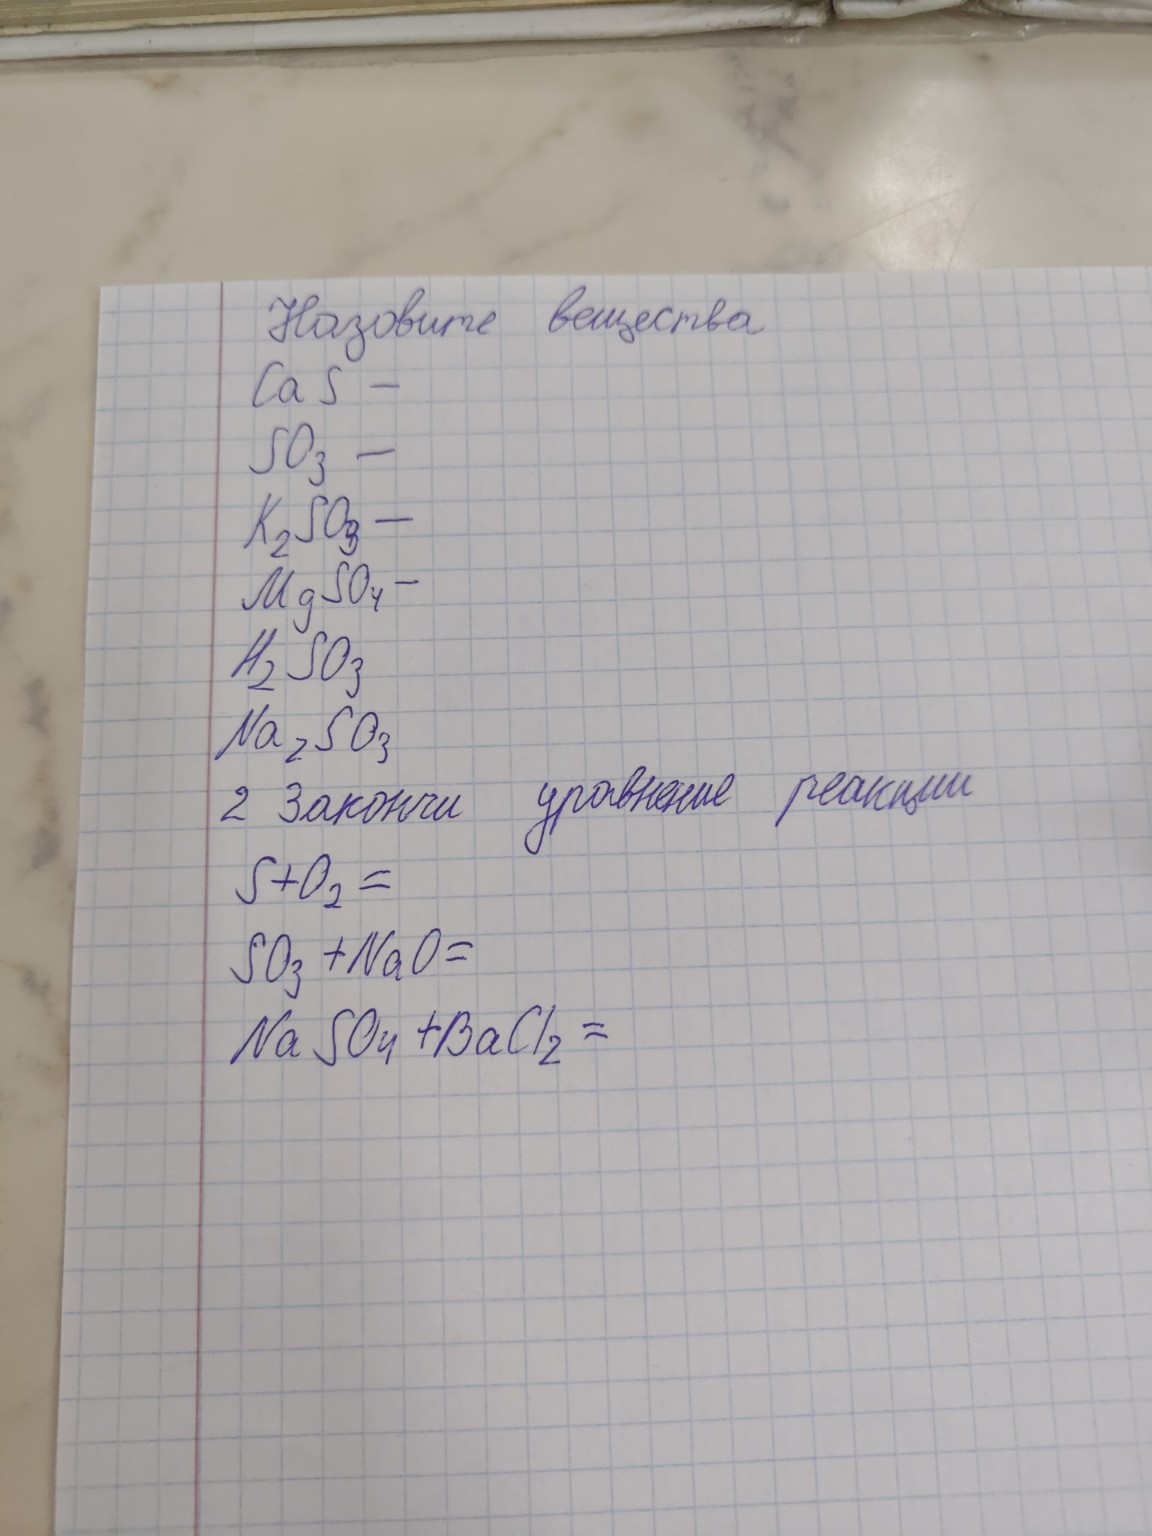 Назовите вещества
CaS –
SO₃ –
K₂SO₃ –
MgSO₄ –
H₂SO₃
Na₂SO₃
2 Закончи уравнение реакции
S+O₂=
SO₃+NaO=
NaSO₄+BaCl₂=